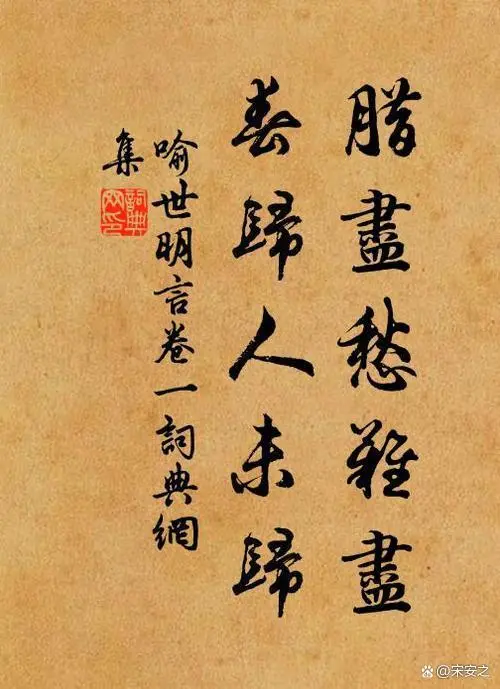 腊盡愁難盡
春歸人未歸
喻世明言卷一詞典網
集
詞典
网印
@宋安之